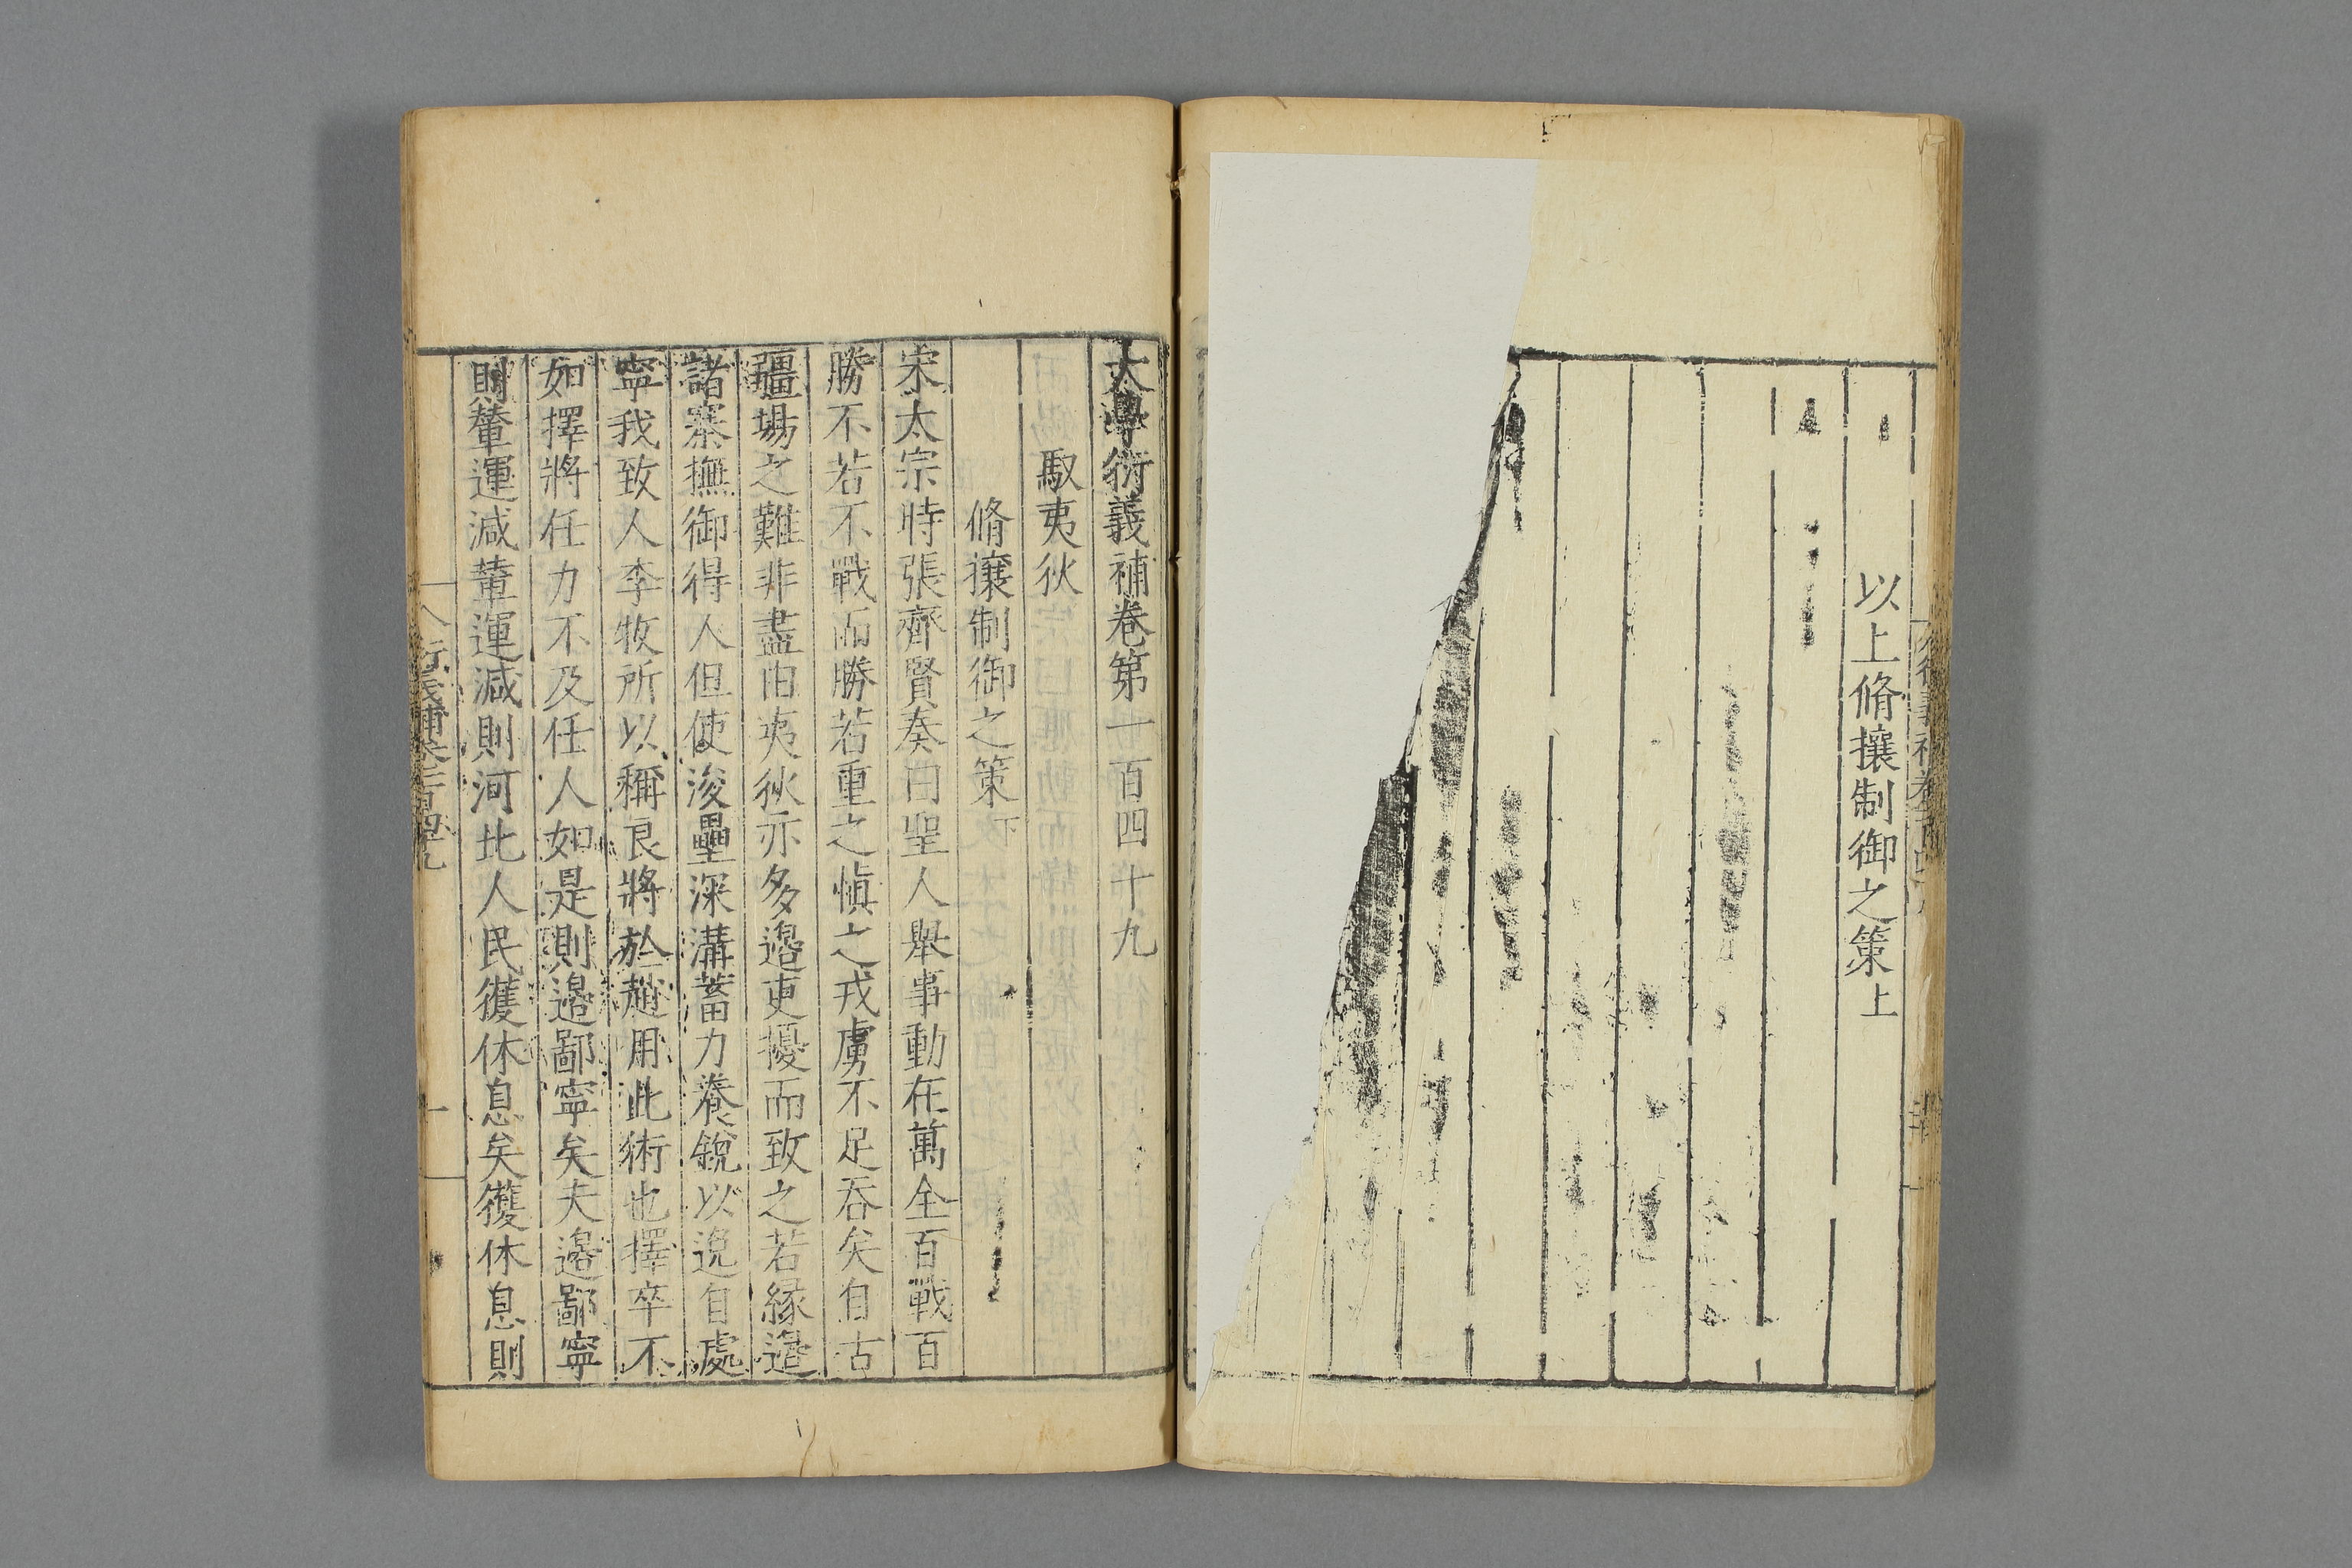 以上脩攘制御之策上
大學衍義補卷第一百四十九
馭夷狄
脩攘制御之策下
宋太宗時張齊賢奏曰聖人舉事動在萬全百戰百
勝不若不戰而勝若重之愼之戎虜不足吞矣自古
疆埸之難非盡由夷狄亦多邉吏擾而致之若縁邉
諸寨撫御得人但使浚壘深溝蓄力養銳以逸自處
寧我致人李牧所以稱良將於趙用此術也擇卒不
如擇將任力不及任人如是則邉鄙寧矣夫邉鄙寧
則輦運減輦運減則河北人民獲休息矣獲休息則